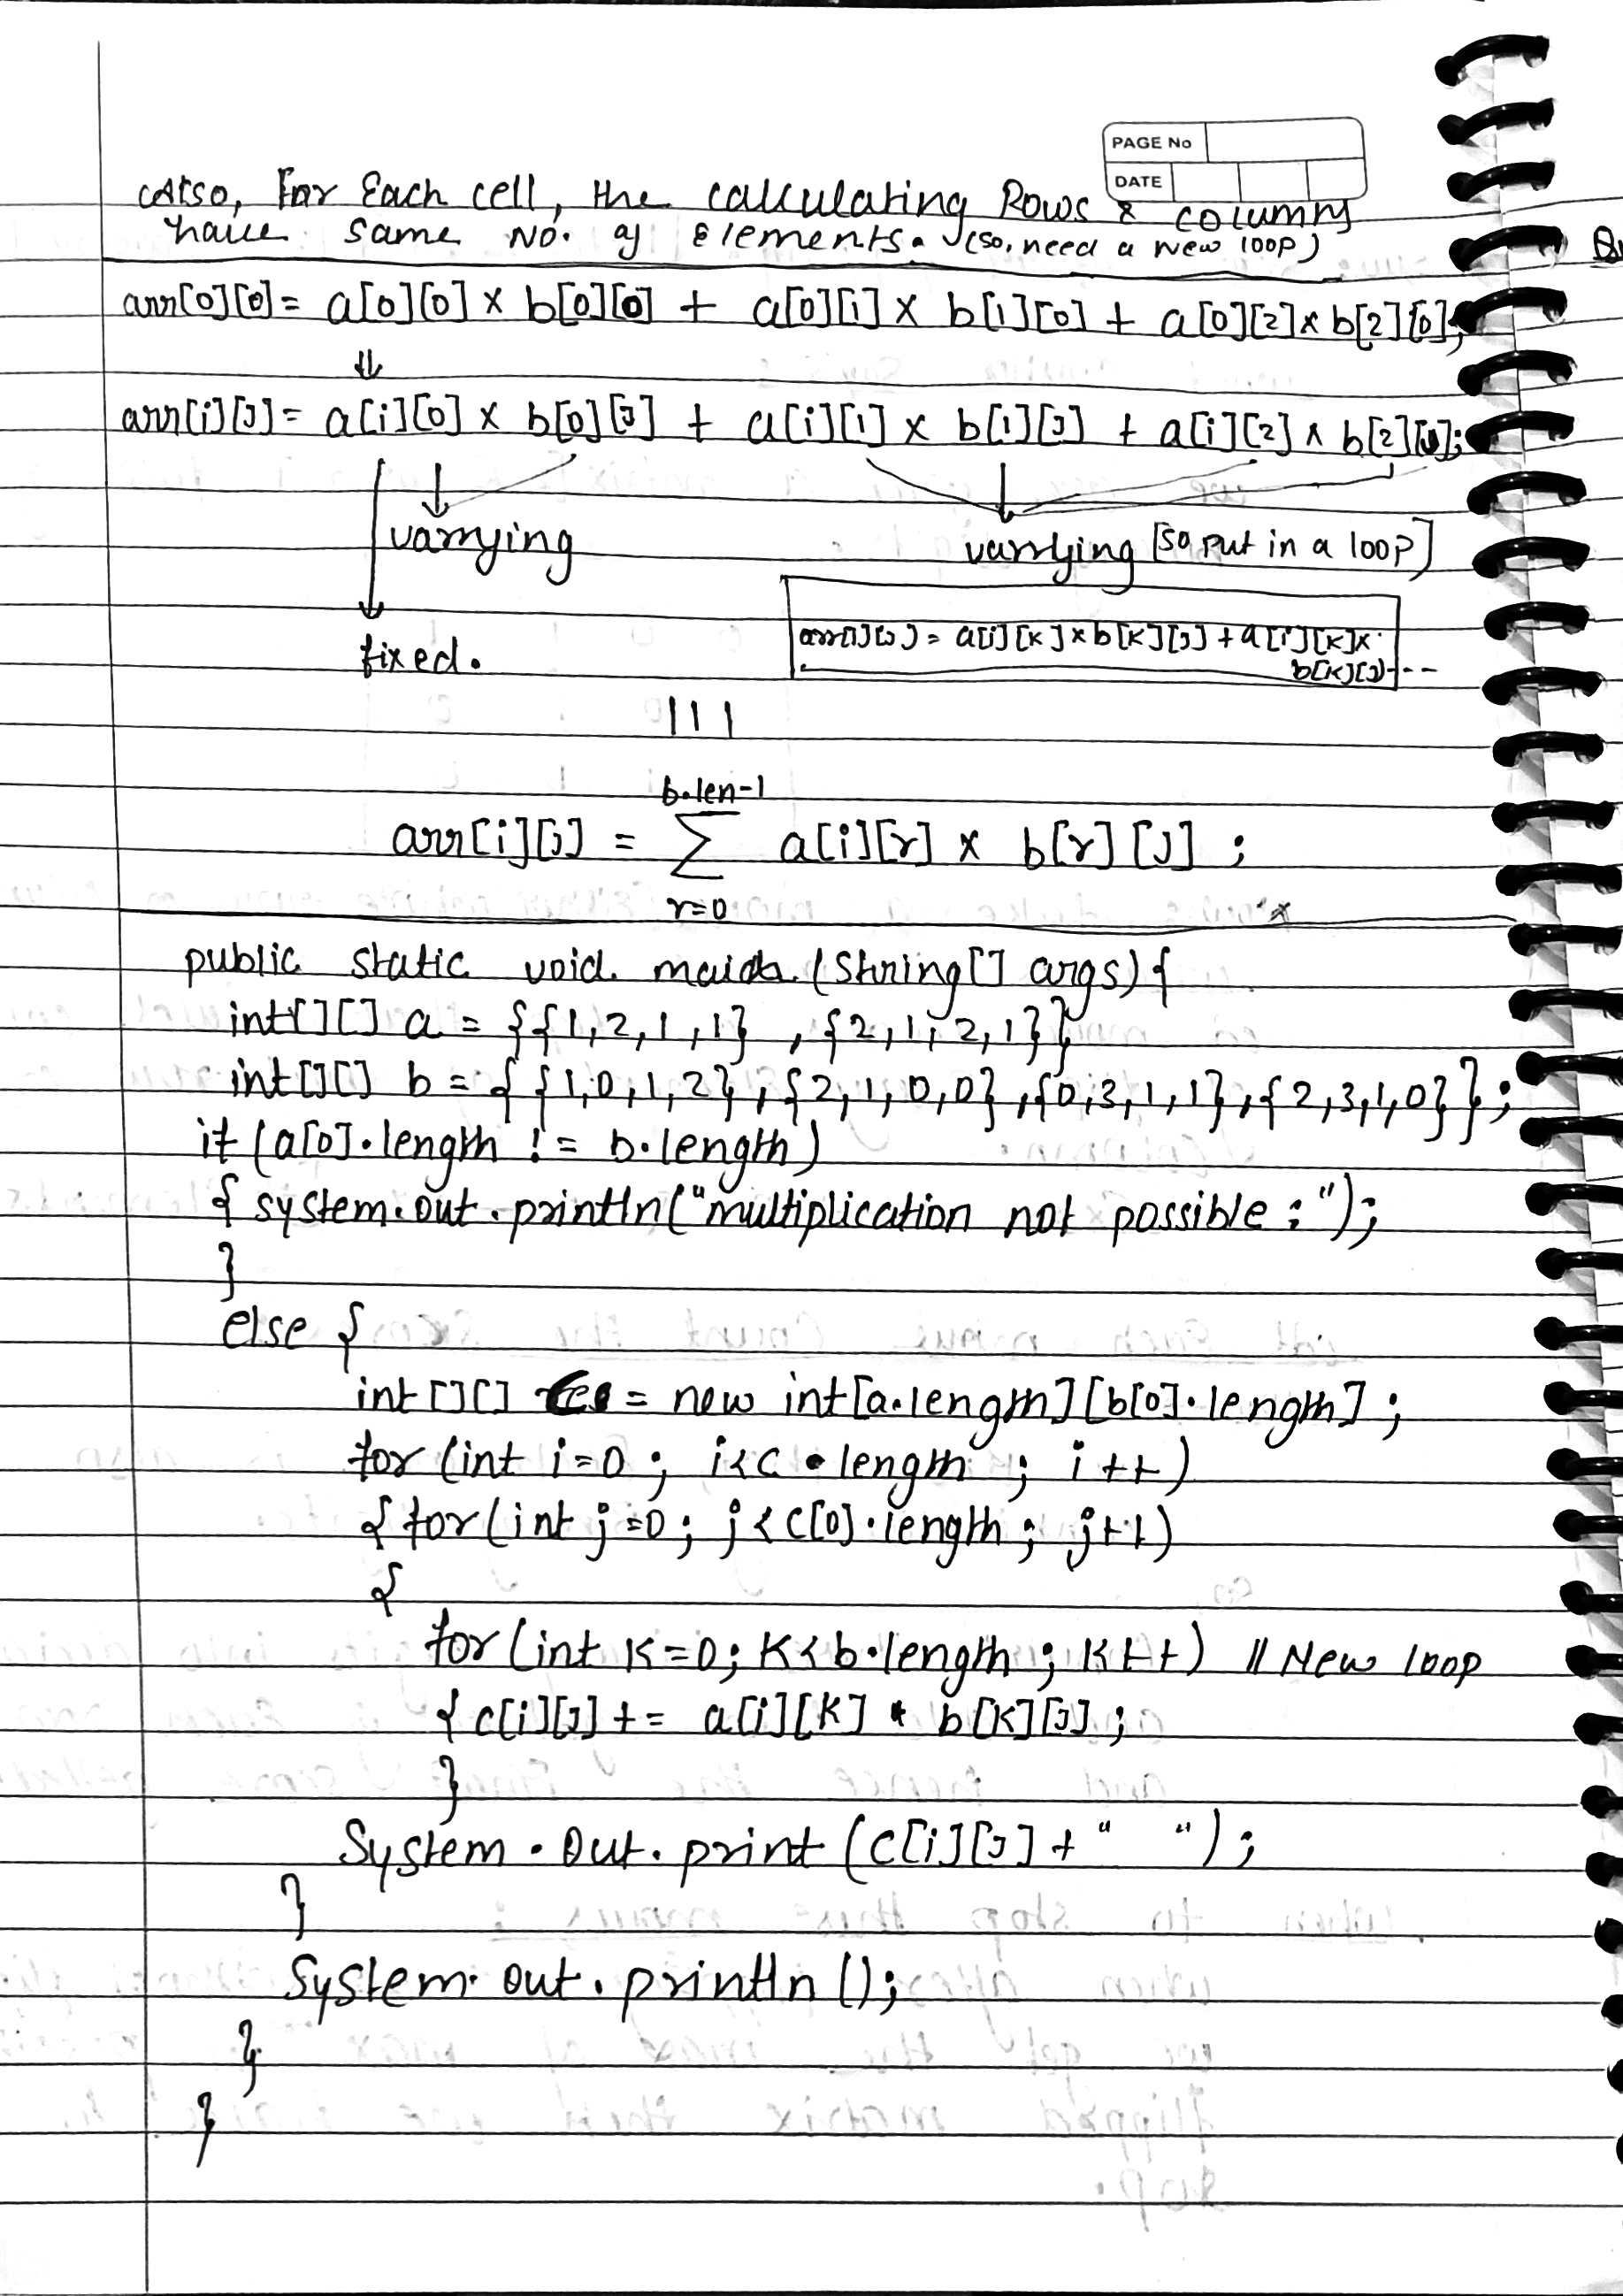 PAGE No
DATE
Also, For Each cell, the calculating Rows & columns
have same No. of Elements. (so, need a New loop)
arr[0][0] = a[0][0] x b[0][0] + a[0][1] x b[1][0] + a[0][2] x b[2][0];
⇓
arr[i][j] = a[i][0] x b[0][j] + a[i][1] x b[1][j] + a[i][2] x b[2][j];
varrying
varrying [so put in a loop]
fixed.
arr[i][j] = a[i][k] x b[k][j] + a[i][k] x
b[k][j]---
|||
b.len-1
arr[i][j] = ∑ a[i][r] x b[r][j] ;
r=0
public static void main (String[] args) {
int[][] a = {{1,2,1,1} , {2,1,2,1}}
int[][] b = { {1,0,1,2} , {2,1,0,0} , {0,3,1,1} , {2,3,1,0} } ;
if (a[0].length != b.length)
{ system.out.println("multiplication not possible :");
}
else {
int [][] c = new int[a.length][b[0].length] ;
for (int i=0 ; i<c.length ; i++)
{ for (int j=0 ; j<c[0].length ; j++)
{
for (int k=0; k<b.length ; k++) // New loop
{ c[i][j] += a[i][k] * b[k][j] ;
}
System.out.print (c[i][j] + " ") ;
}
System.out.println ();
}
}